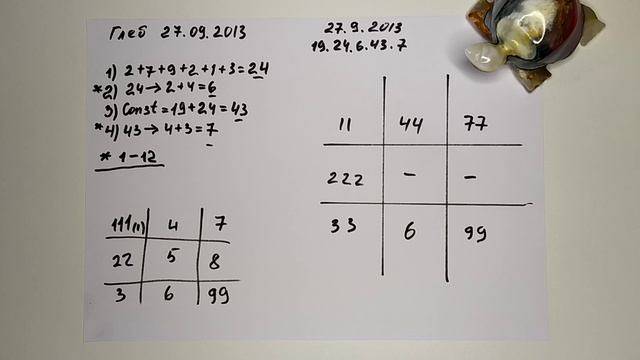 Глеб 27.09.2013
1) 2+7+9+2+1+3=24
*2) 24→2+4=6
3) Const=19+24=43
*4) 43→4+3=7
* 1-12
111(1) 4 7
22 5 8
3 6 99
27.9.2013
19.24.6.43.7
11 44 77
222 - -
33 6 99